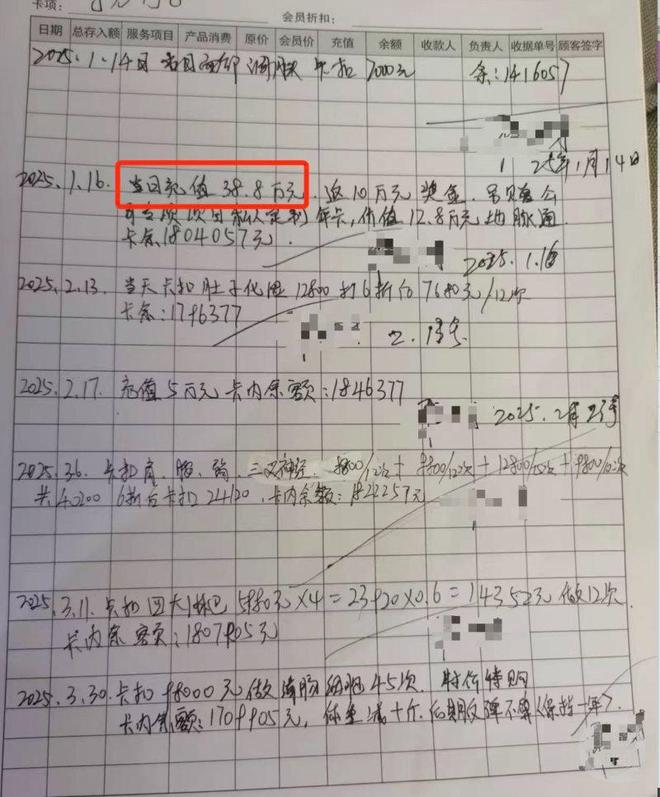 卡项:
会员折扣:
日期 总存入额 服务项目 产品消费 原价 会员价 充值 余额 收款人 负责人 收据单号 顾客签字
2025.1.14日 卡扣 7000元 余:1416057
2025年1月14日
2025.1.16. 当日充值 38.8万元. 返10万元奖金.
年卡,价值12.8万元地脉通
卡余1804057元.
2025.1.16
2025.2.13. 当天卡扣肚子化脂12800打6折后7680元/12次
卡余:1796377
2025.2.17. 充值5万元卡内余额:1846377
2025.2月
2025.3.6. 卡扣肩、三叉神经. 9800/12次+9800/12次+12800/12次+9800/12次
共40200 6折后卡扣24120.卡内余额:1822257元
2025.3.11.卡扣四大淋巴 5980元×4=23920×0.6=14352元 做12次.
卡内余额:1807905元
2025.3.30.卡扣98000元做 45次. 特价特购
卡内余额:1709905元,体重减十斤.后期反弹不算(保持一年).